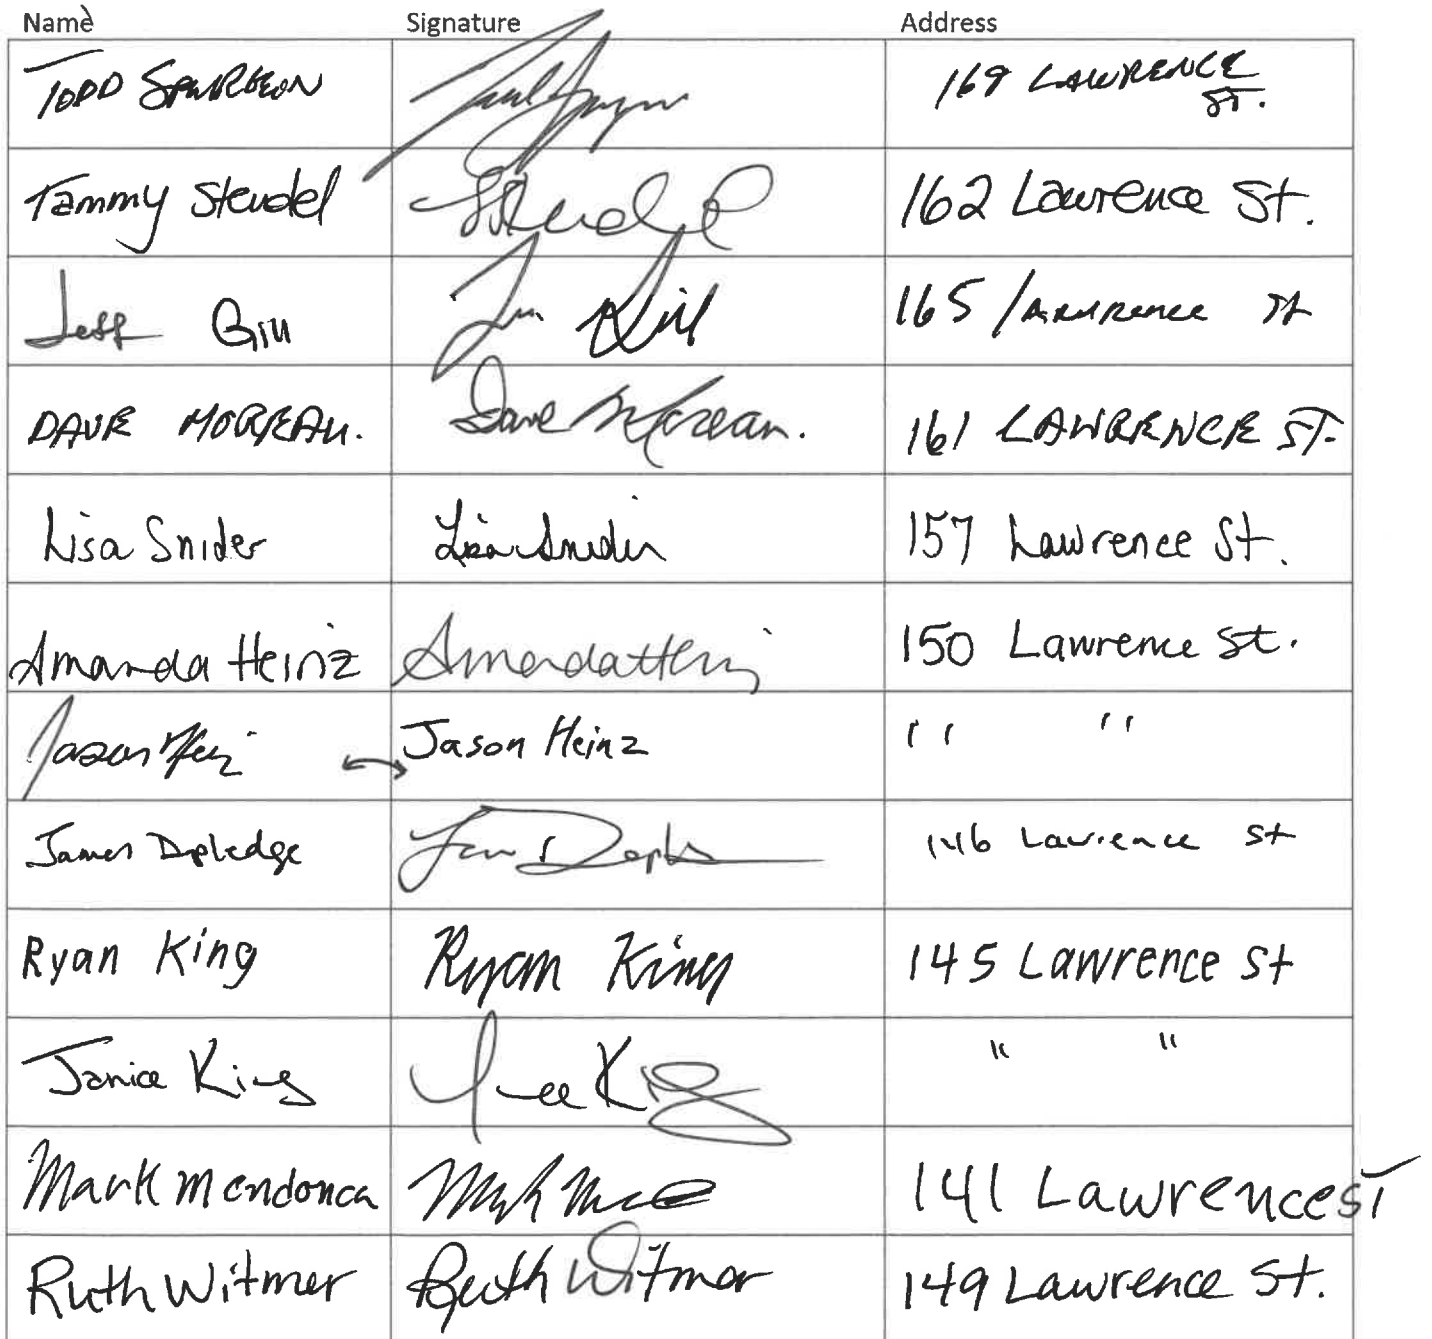 Name Signature Address
TODD SPURGEON 169 LAWRENCE
ST.
Tammy Steudel Steudel 162 Lawrence St.
Jeff Gill Gill 165 Lawrence St
DAVE MOREAU. Dave Moreau. 161 LAWRENCE ST.
Lisa Snider Lisa Snider 157 Lawrence St.
Amanda Heinz Amanda Hein 150 Lawrence St.
Jason Hein Jason Heinz " "
James Depledge 146 Lawrence St
Ryan King Ryan King 145 Lawrence St
Janice King King " "
Mark Mendonca 141 Lawrence ST
Ruth Witmer Ruth Witmer 149 Lawrence St.